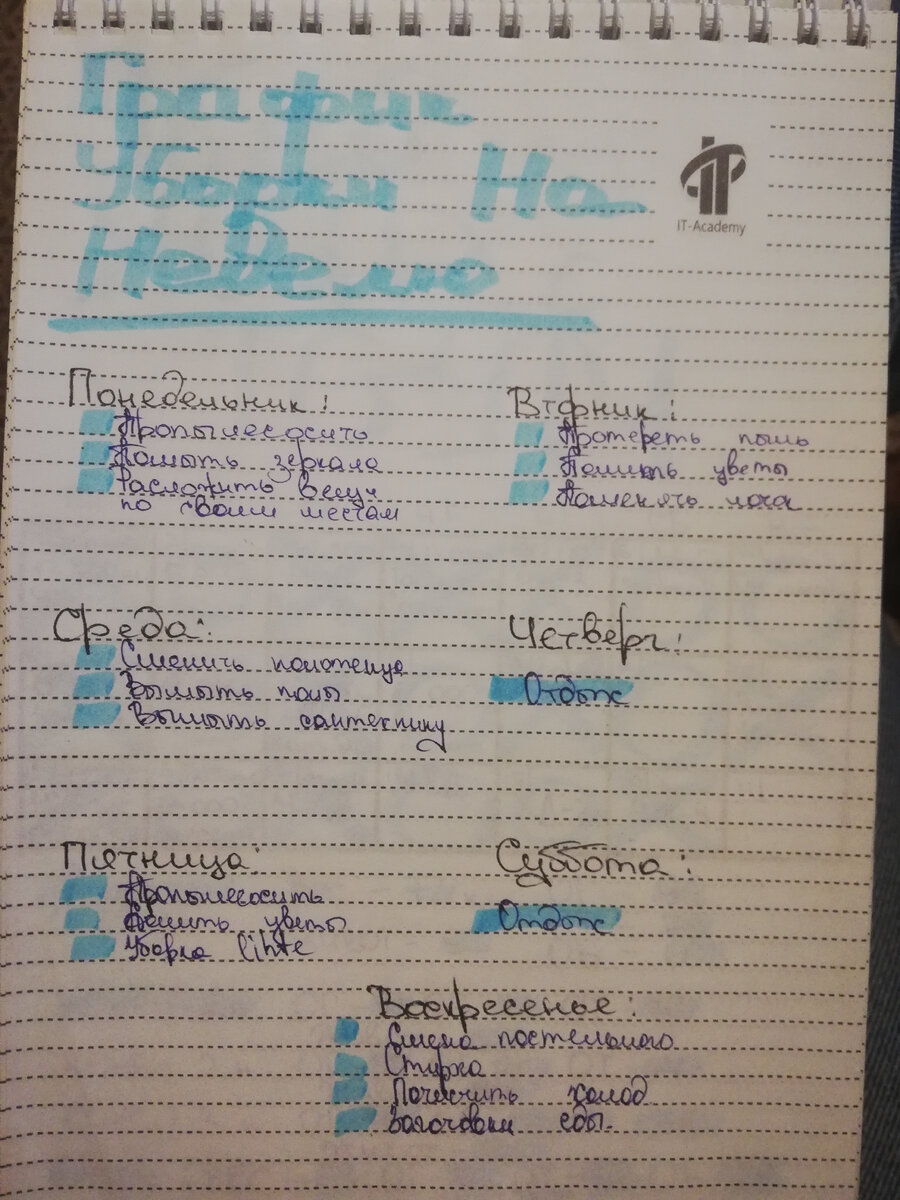 График
Уборки На
Неделю
IT-Academy
Понедельник:
Пропылесосить
Помыть зеркала
Разложить вещи
по своим местам
Вторник:
Протереть пыль
Полить цветы
Поменять
Среда:
Сменить полотенца
Вымыть полы
Вымыть сантехнику
Четверг:
Отдых
Пятница:
Пропылесосить
Полить цветы
Уборка
Суббота:
Отдых
Воскресенье:
Смена постельного
Стирка
Почистить холод
Заготовки еды.